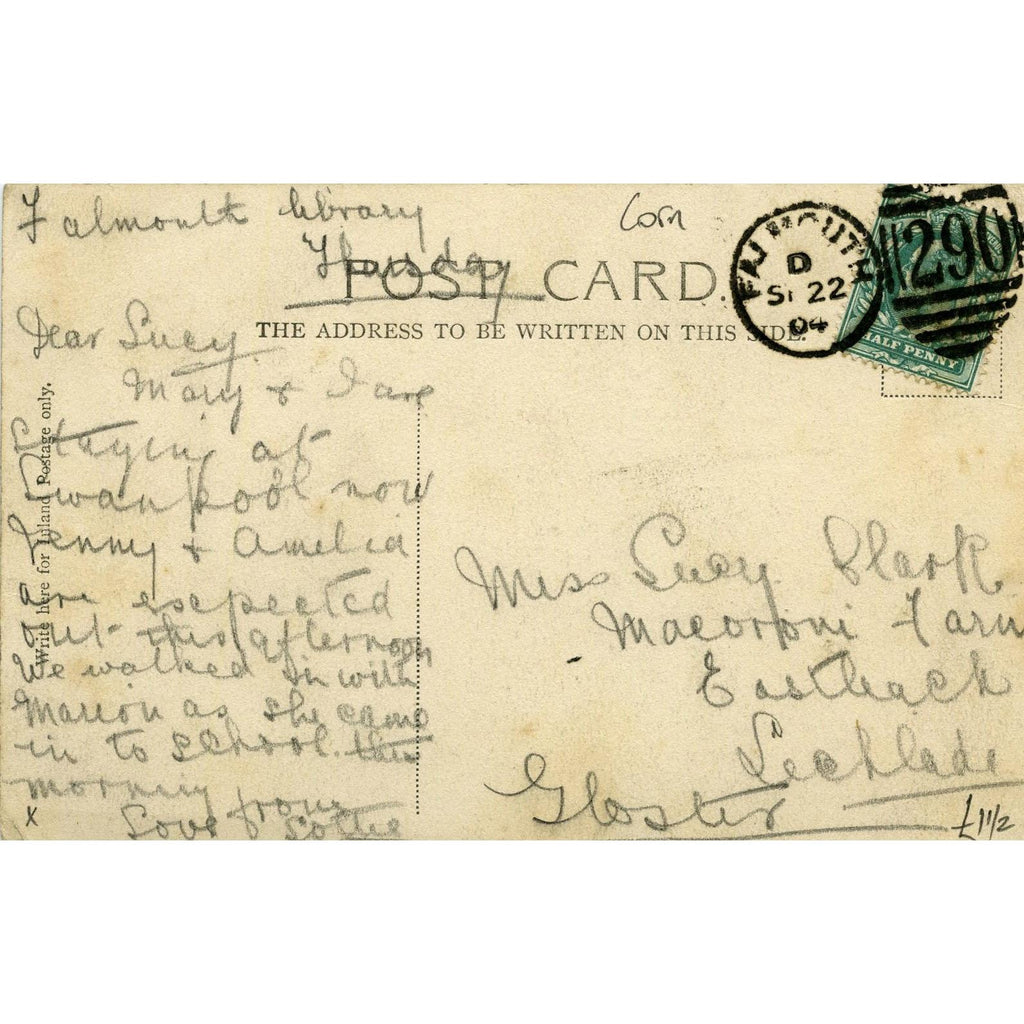 Falmouth library
Thursday
Corn
POST CARD.
THE ADDRESS TO BE WRITTEN ON THIS SIDE.
Write here for Inland Postage only.
FALMOUTH
D
SP 22
04
290
HALF PENNY
Dear Lucy
Mary & I are
staying at
Swanpool now
Lenny & Amelia
are esepected
out this afternoon
We walked in with
Marion as she came
in to school this
morning
Love from
Lottie
X
Miss Lucy Clark
Macoroni Farm
Eastleach
Lechlade
Gloster
£1 1/2